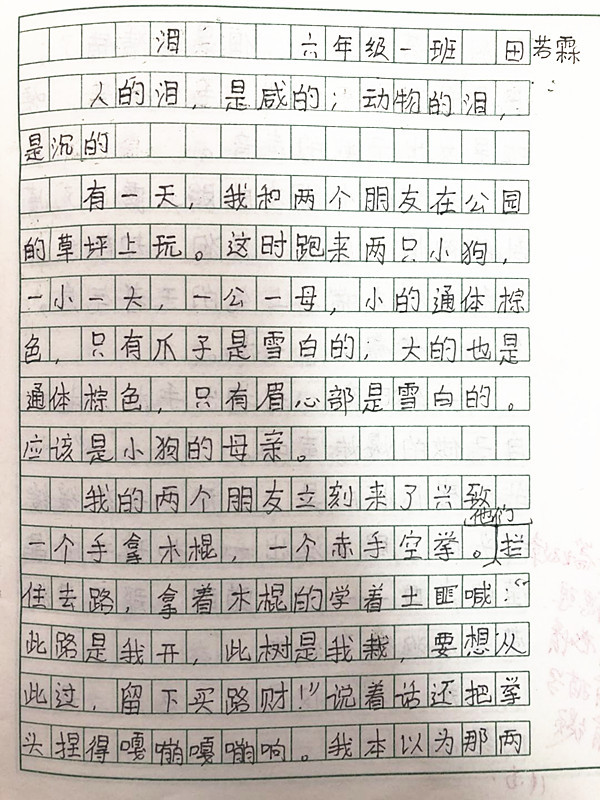 泪 六年级一班 田若霖
人的泪，是咸的；动物的泪，
是沉的
有一天，我和两个朋友在公园
的草坪上玩。这时跑来两只小狗，
一小一大，一公一母，小的通体棕
色，只有爪子是雪白的；大的也是
通体棕色，只有眉心部是雪白的。
应该是小狗的母亲。
我的两个朋友立刻来了兴致
他们
一个手拿木棍，一个赤手空拳。拦
住去路，拿着木棍的学着土匪喊：“
此路是我开，此树是我栽，要想从
此过，留下买路财！”说着话还把拳
头捏得嘎嘣嘎嘣响。我本以为那两